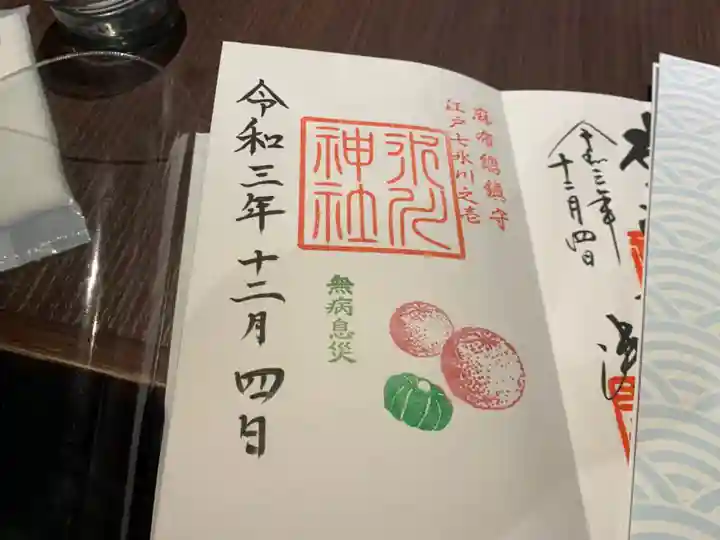 麻布總鎮守
江戸七氷川之壱
氷川
神社
無病息災
令和三年十二月四日
令和三年
十二月四日